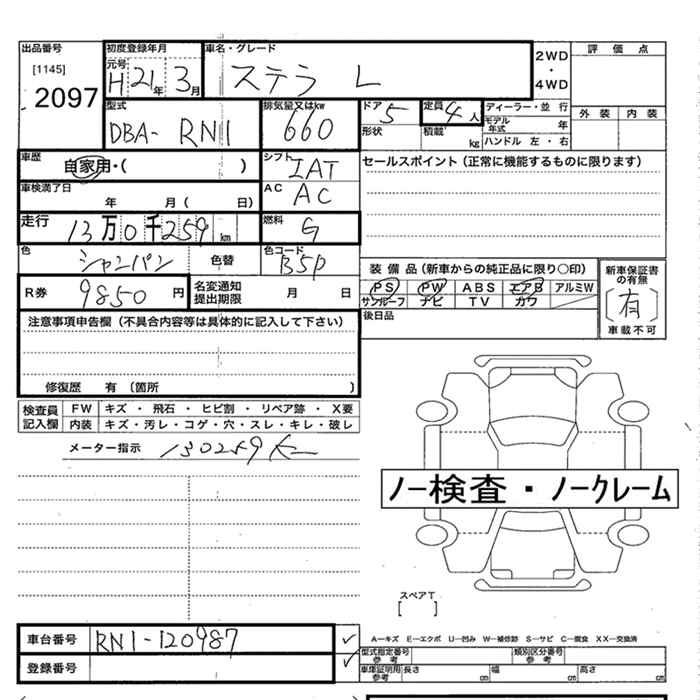 出品番号 初度登録年月 車名・グレード 2WD・4WD 評価点
[1145] 元号 H21年 3月 ステラ L
2097 外装 内装
型式 排気量又はkw ドア 5 定員 4人 ディーラー・並行
DBA-RN1 660 形状 積載 kg モデル年式 年
ハンドル 左・右
車歴 自家用・( ) シフト IAT セールスポイント(正常に機能するものに限ります)
車検満了日 年 月( 日) AC AC
走行 13万0千259km 燃料 G
色 シャンパン 色替 色コード B5P 装備品(新車からの純正品に限り○印) 新車保証書の有無
R券 9850円 名変通知提出期限 月 日 PS PW ABS エアB アルミW [有]
サンルーフ ナビ TV カワ 車載不可
注意事項申告欄(不具合内容等は具体的に記入して下さい) 後日品
修復歴 有(箇所 )
検査員記入欄 FW キズ・飛石・ヒビ割・リペア跡・X要
内装 キズ・汚レ・コゲ・穴・スレ・キレ・破レ
メーター指示 130259K
ノー検査・ノークレーム
スペアT
[ ]
車台番号 RN1-120987 A―キズ E―エクボ U―凹み W―補修跡 S―サビ C―腐食 XX―交換済
登録番号 型式指定番号参考 類別区分番号参考
車庫証明用参考 長さ cm 幅 cm 高さ cm